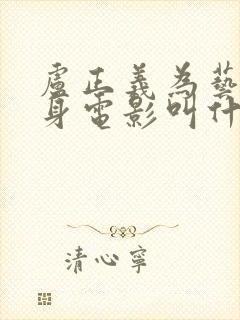 盧正義為藝
身電影叫什
清心寧